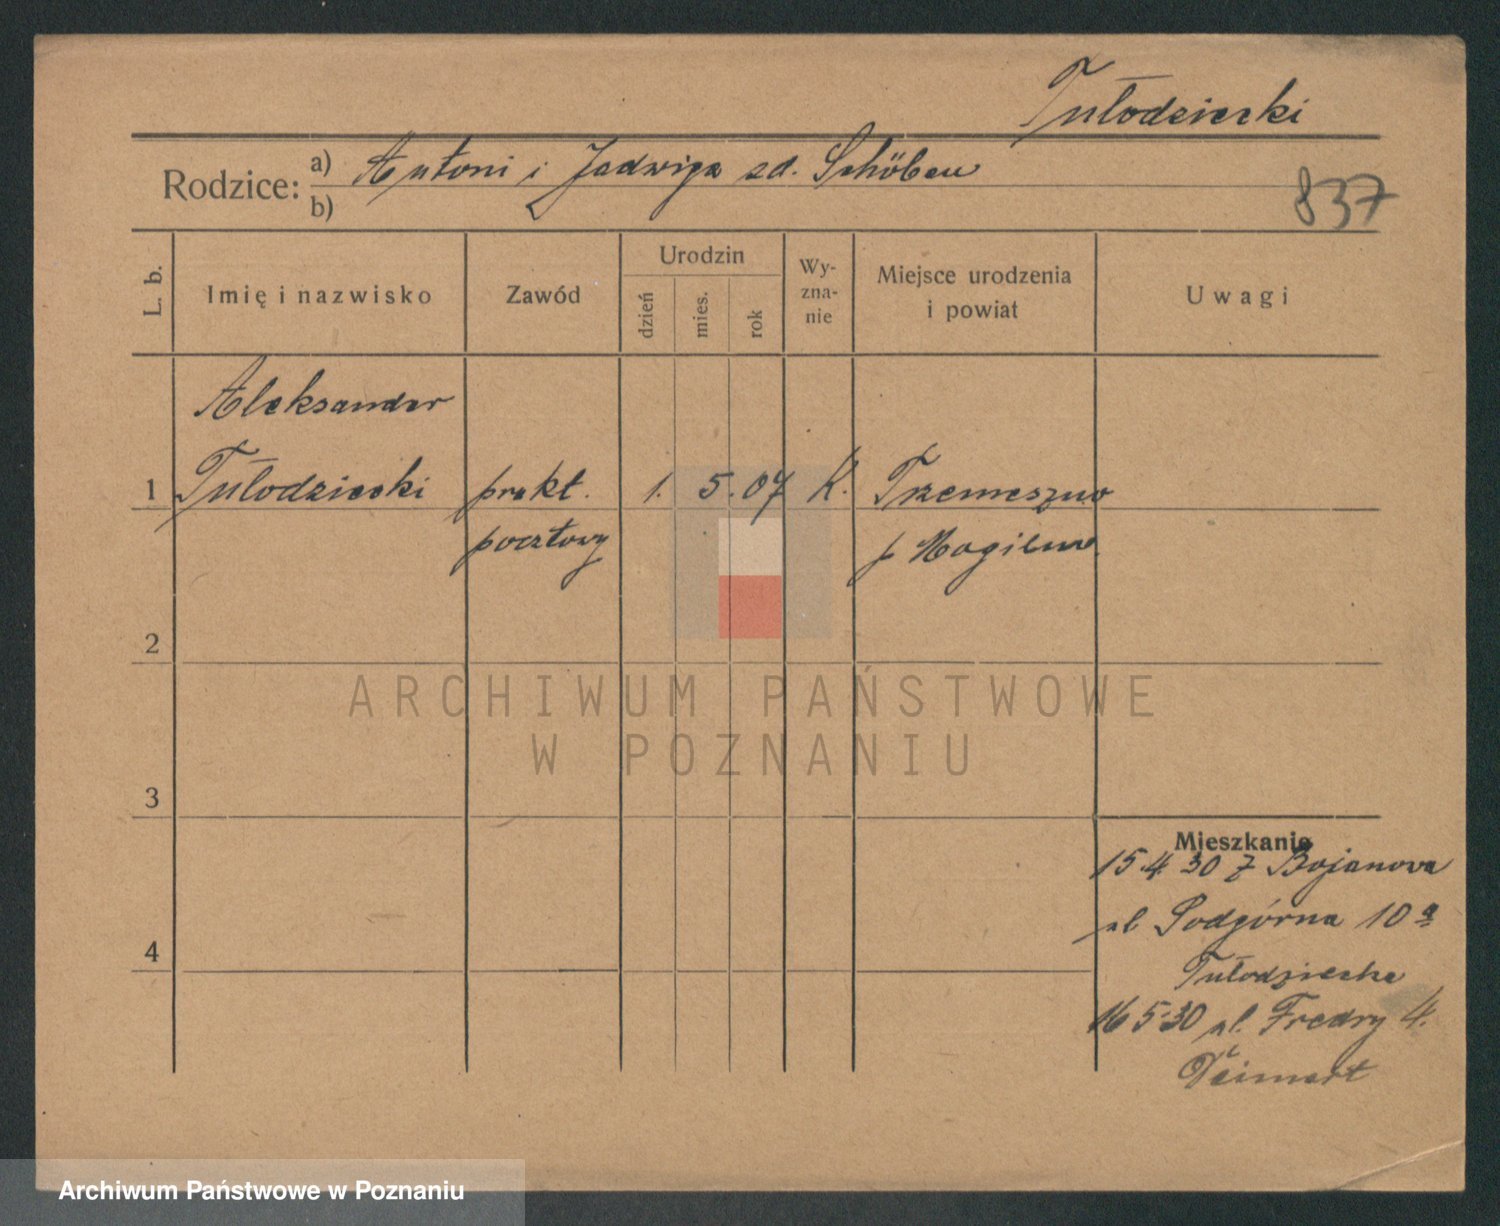 Tułodziecki
Rodzice: a) Antoni i Jadwiga zd. Schöbau
b)
837
L. b.
Imię i nazwisko
Zawód
Urodzin
dzień
mies.
rok
Wy-
zna-
nie
Miejsce urodzenia
i powiat
Uwagi
Aleksander
1 Tułodziecki prakt. 1. 5. 07 K. Trzemeszno
pocztowy p Mogilno
2
ARCHIWUM PAŃSTWOWE
W POZNANIU
3
Mieszkanie
15.4 30 z Bojanowa
ul Podgórna 10 a
4
Tułodziecka
16 5 30 ul. Fredry 4.
Archiwum Państwowe w Poznaniu